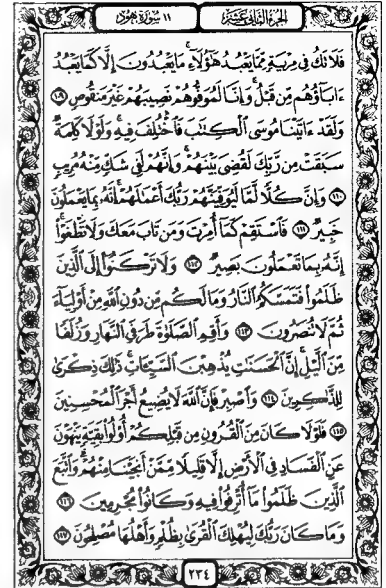 الجزء الثاني عشر
١١ سورة هود
فَلَا تَكُ فِى مِرْيَةٍ مِّمَّا يَعْبُدُ هَٰٓؤُلَآءِ ۚ مَا يَعْبُدُونَ إِلَّا كَمَا يَعْبُدُ
ءَابَآؤُهُم مِّن قَبْلُ ۚ وَإِنَّا لَمُوَفُّوهُمْ نَصِيبَهُمْ غَيْرَ مَنقُوصٍ ١٠٩
وَلَقَدْ ءَاتَيْنَا مُوسَى ٱلْكِتَٰبَ فَٱخْتُلِفَ فِيهِ ۚ وَلَوْلَا كَلِمَةٌ
سَبَقَتْ مِن رَّبِّكَ لَقُضِىَ بَيْنَهُمْ ۚ وَإِنَّهُمْ لَفِى شَكٍّ مِّنْهُ مُرِيبٍ
١١٠ وَإِنَّ كُلًّا لَّمَّا لَيُوَفِّيَنَّهُمْ رَبُّكَ أَعْمَٰلَهُمْ ۚ إِنَّهُۥ بِمَا يَعْمَلُونَ
خَبِيرٌ ١١١ فَٱسْتَقِمْ كَمَآ أُمِرْتَ وَمَن تَابَ مَعَكَ وَلَا تَطْغَوْا۟ ۚ
إِنَّهُۥ بِمَا تَعْمَلُونَ بَصِيرٌ ١١٢ وَلَا تَرْكَنُوٓا۟ إِلَى ٱلَّذِينَ
ظَلَمُوا۟ فَتَمَسَّكُمُ ٱلنَّارُ وَمَا لَكُم مِّن دُونِ ٱللَّهِ مِنْ أَوْلِيَآءَ
ثُمَّ لَا تُنصَرُونَ ١١٣ وَأَقِمِ ٱلصَّلَوٰةَ طَرَفَىِ ٱلنَّهَارِ وَزُلَفًا
مِّنَ ٱلَّيْلِ ۚ إِنَّ ٱلْحَسَنَٰتِ يُذْهِبْنَ ٱلسَّيِّـَٔاتِ ۚ ذَٰلِكَ ذِكْرَىٰ
لِلذَّٰكِرِينَ ١١٤ وَٱصْبِرْ فَإِنَّ ٱللَّهَ لَا يُضِيعُ أَجْرَ ٱلْمُحْسِنِينَ
١١٥ فَلَوْلَا كَانَ مِنَ ٱلْقُرُونِ مِن قَبْلِكُمْ أُو۟لُوا۟ بَقِيَّةٍ يَنْهَوْنَ
عَنِ ٱلْفَسَادِ فِى ٱلْأَرْضِ إِلَّا قَلِيلًا مِّمَّنْ أَنجَيْنَا مِنْهُمْ ۗ وَٱتَّبَعَ
ٱلَّذِينَ ظَلَمُوا۟ مَآ أُتْرِفُوا۟ فِيهِ وَكَانُوا۟ مُجْرِمِينَ ١١٦
وَمَا كَانَ رَبُّكَ لِيُهْلِكَ ٱلْقُرَىٰ بِظُلْمٍ وَأَهْلُهَا مُصْلِحُونَ ١١٧
٢٣٤